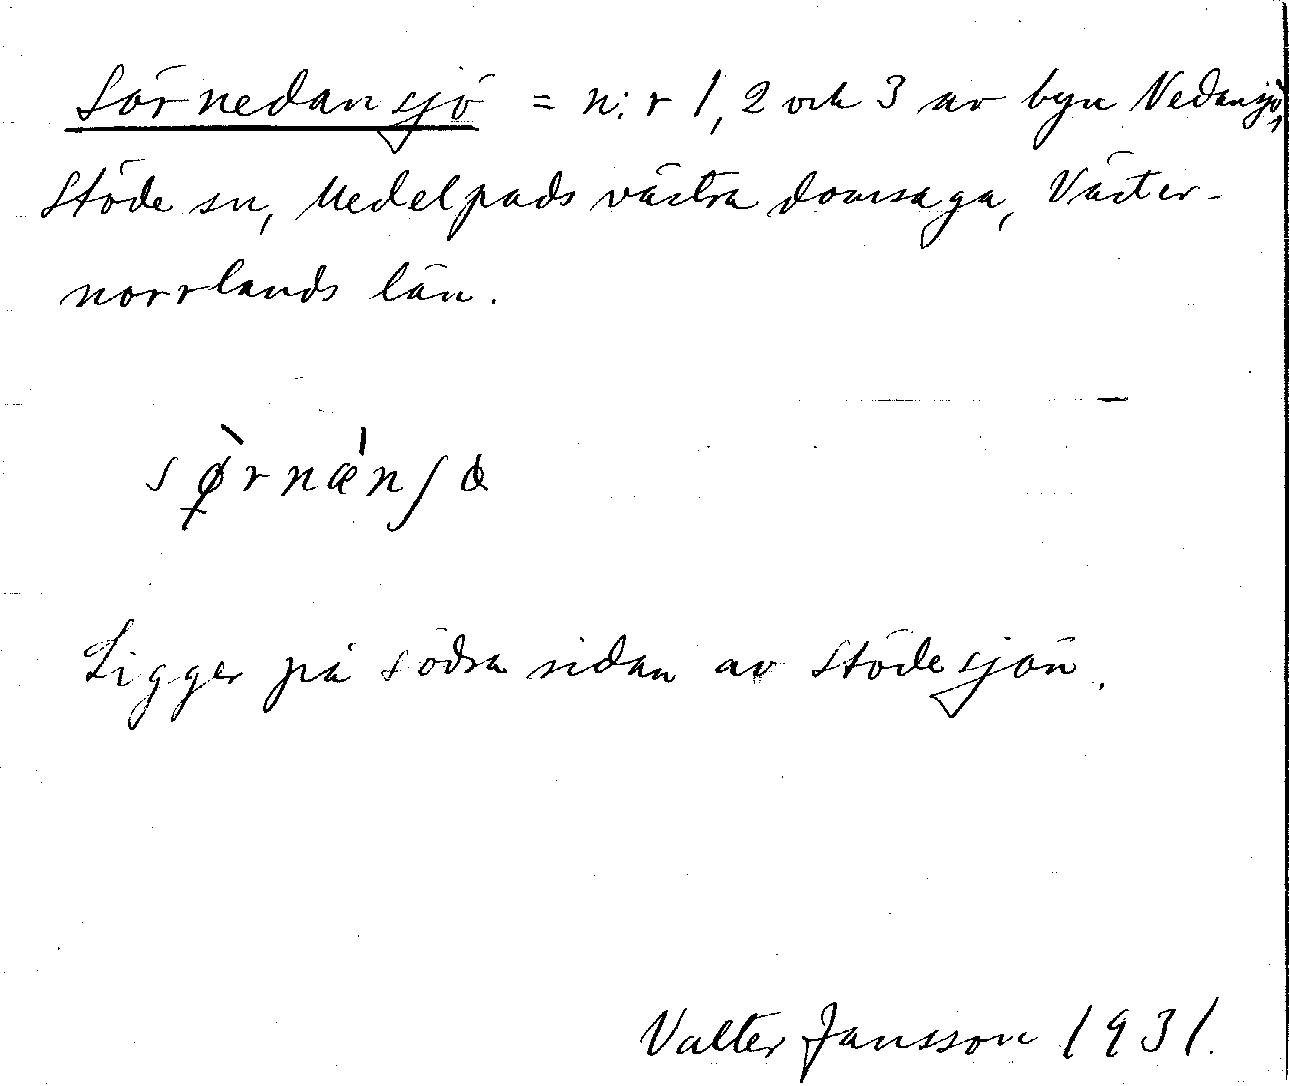 Sörnedansjö = n:r 1, 2 och 3 av byn Nedansjö,
Stöde sn, Medelpads västra domsaga, Väster-
norrlands län.
sø̀rnǽnʃø
Ligger på södra sidan av Stödesjön.
Valter Jansson 1931.